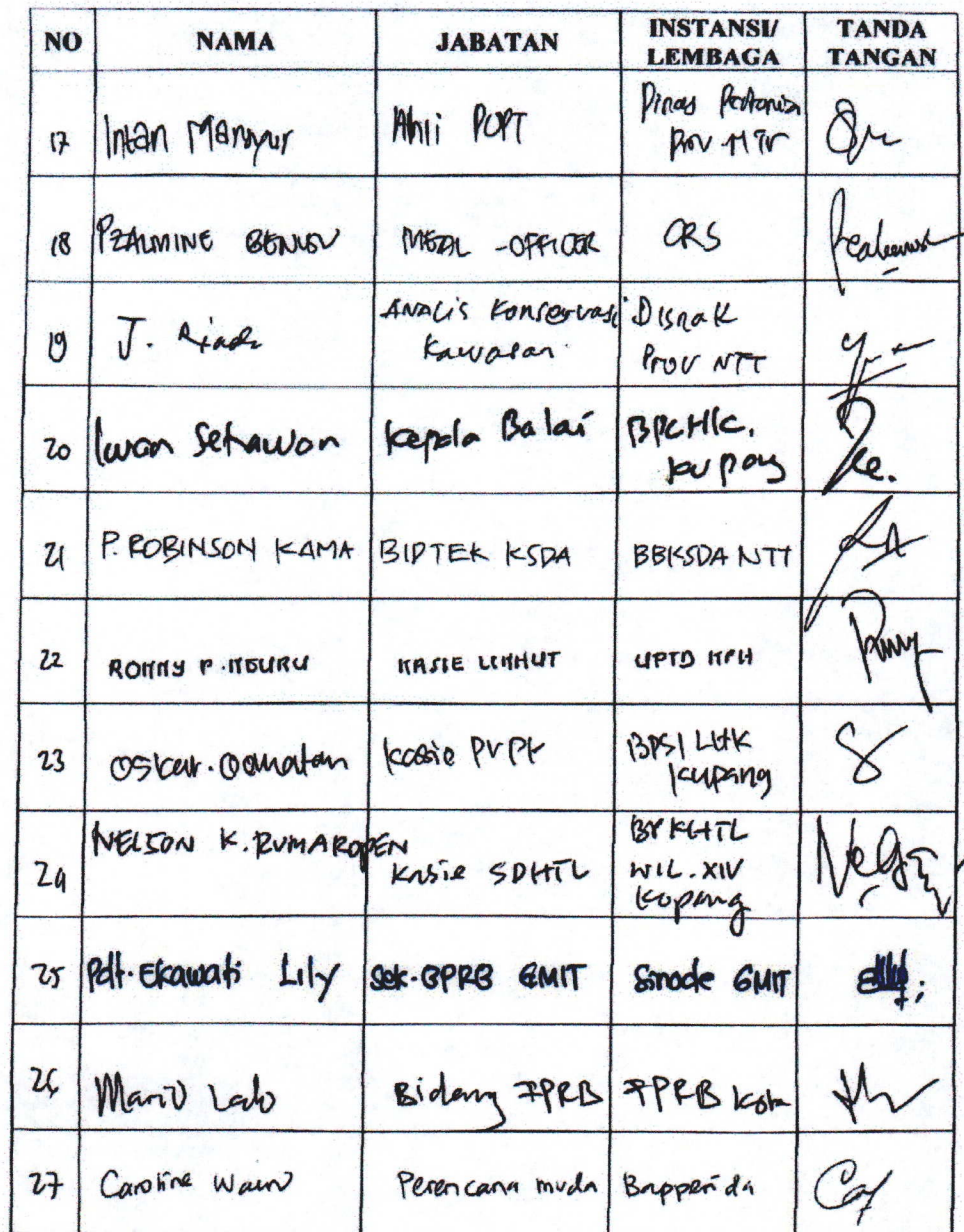 NO NAMA JABATAN INSTANSI/ LEMBAGA TANDA TANGAN
17 Intan Mansyur Ahli POPT Dinas Pertanian
Prov NTT
18 PZALMINE BENUSU MEAL - OFFICER CRS
19 J. Analis Konservasi Kawasan Disnak
Prov NTT
20 Iwan Setiawan Kepala Balai
Kupang
21 P. ROBINSON KAMA BIDTEK KSDA BBKSDA NTT
22 RONNY P. NGURU KASIE LINHUT UPTD KPH
23 Oskar. Kasie BPSI LHK
Kupang
24 NELSON K. RUMAROPEN Kasie SDHTL BPKHTL
WIL. XIV
Kupang
25 Pdt. Ekawati Lily Sek. BPRB GMIT Sinode GMIT
26 Mario Lado Bidang FPRB FPRB Kota
27 Caroline Perencana muda Bapperida